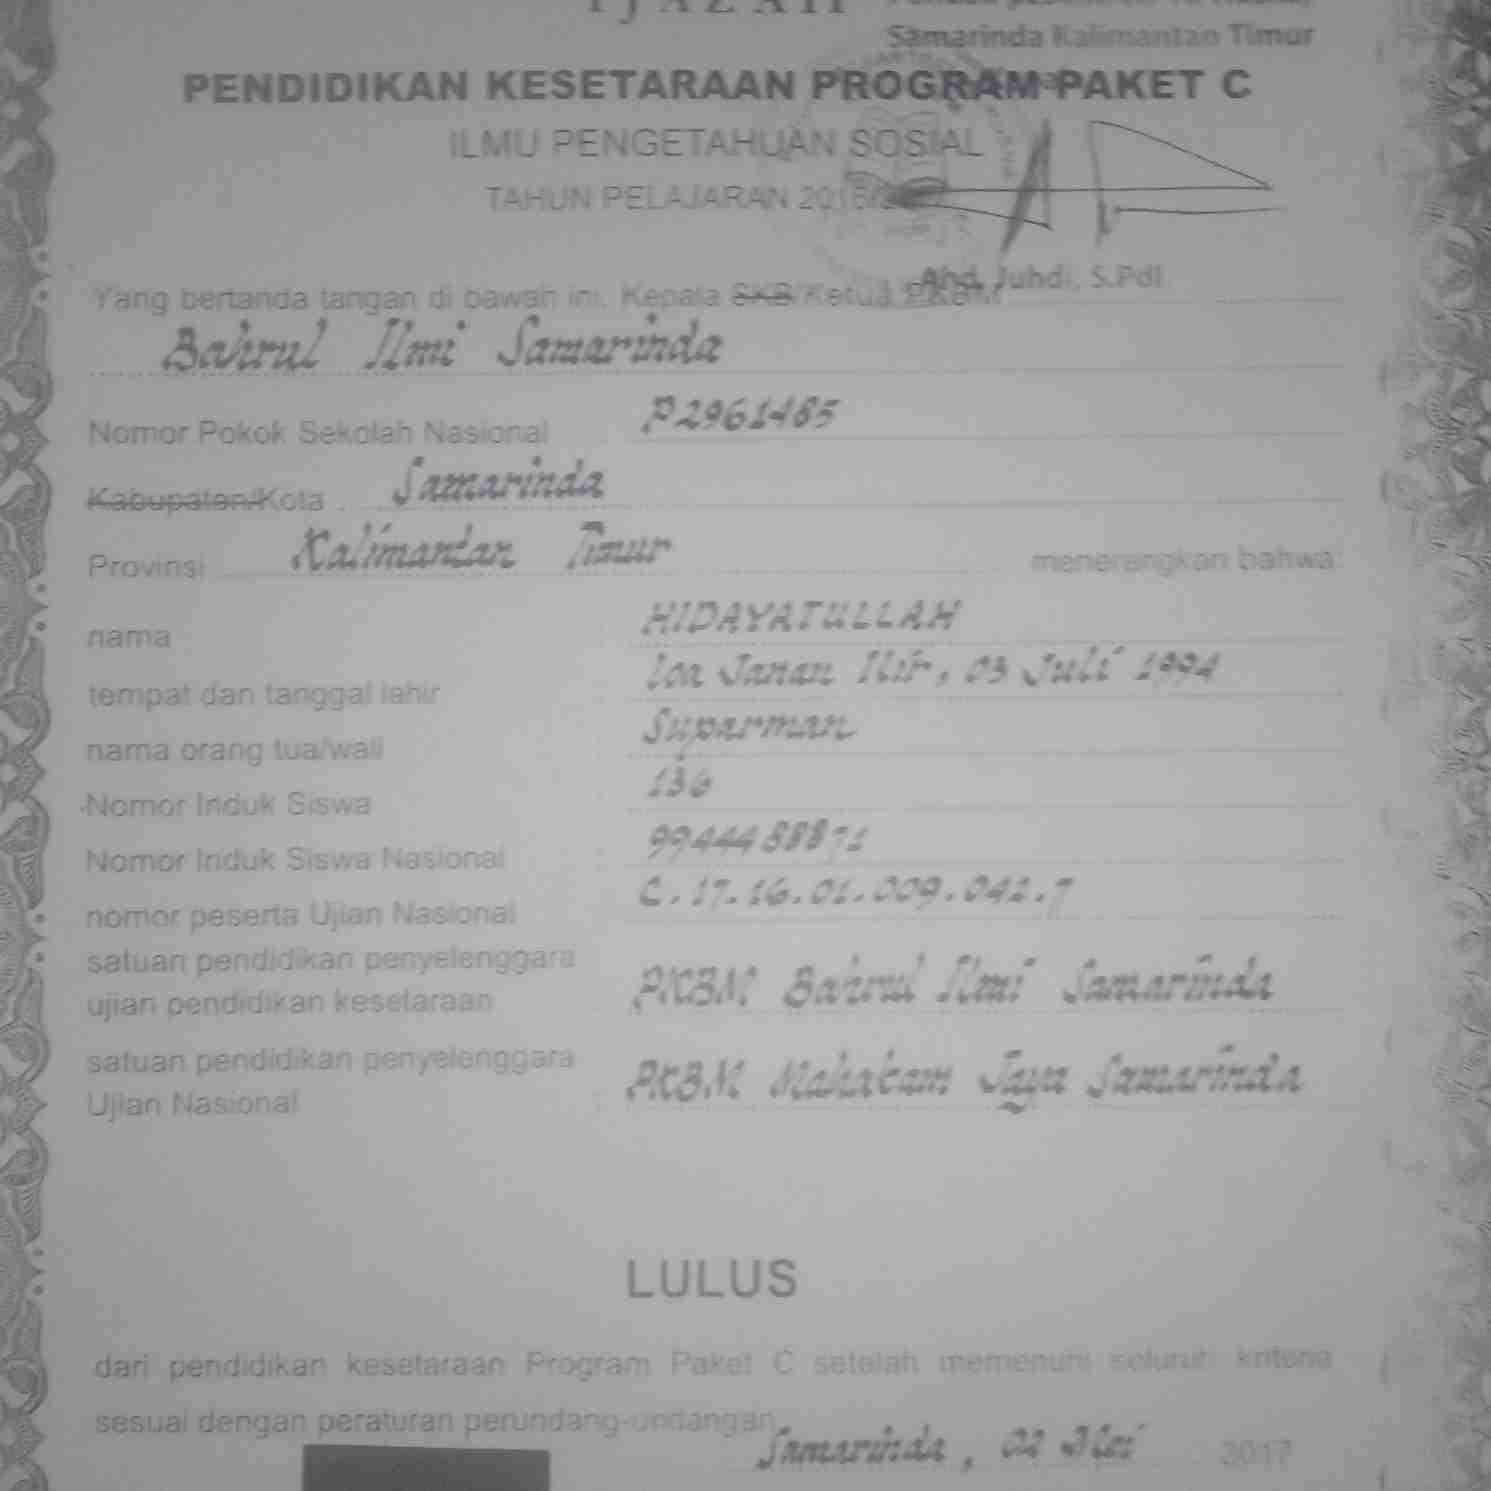 IJAZAH
Samarinda Kalimantan Timur
PENDIDIKAN KESETARAAN PROGRAM PAKET C
ILMU PENGETAHUAN SOSIAL
TAHUN PELAJARAN
Ahd. Juhdi, S.PdI
Yang bertanda tangan di bawah ini, Kepala SKB/Ketua PKBM
Bahrul Ilmi Samarinda
Nomor Pokok Sekolah Nasional P2961485
Kabupaten/Kota Samarinda
Provinsi Kalimantan Timur menerangkan bahwa:
nama HIDAYATULLAH
tempat dan tanggal lahir Loa Janan Ilir, 03 Juli 1994
nama orang tua/wali Suparman
Nomor Induk Siswa 136
Nomor Induk Siswa Nasional 9944488871
nomor peserta Ujian Nasional C.17.16.01.009.042.7
satuan pendidikan penyelenggara
ujian pendidikan kesetaraan PKBM Bahrul Ilmi Samarinda
satuan pendidikan penyelenggara
Ujian Nasional PKBM Mahakam Jaya Samarinda
LULUS
dari pendidikan kesetaraan Program Paket C setelah memenuhi seluruh kriteria
sesuai dengan peraturan perundang-undangan
Samarinda, 02 Mei 2017